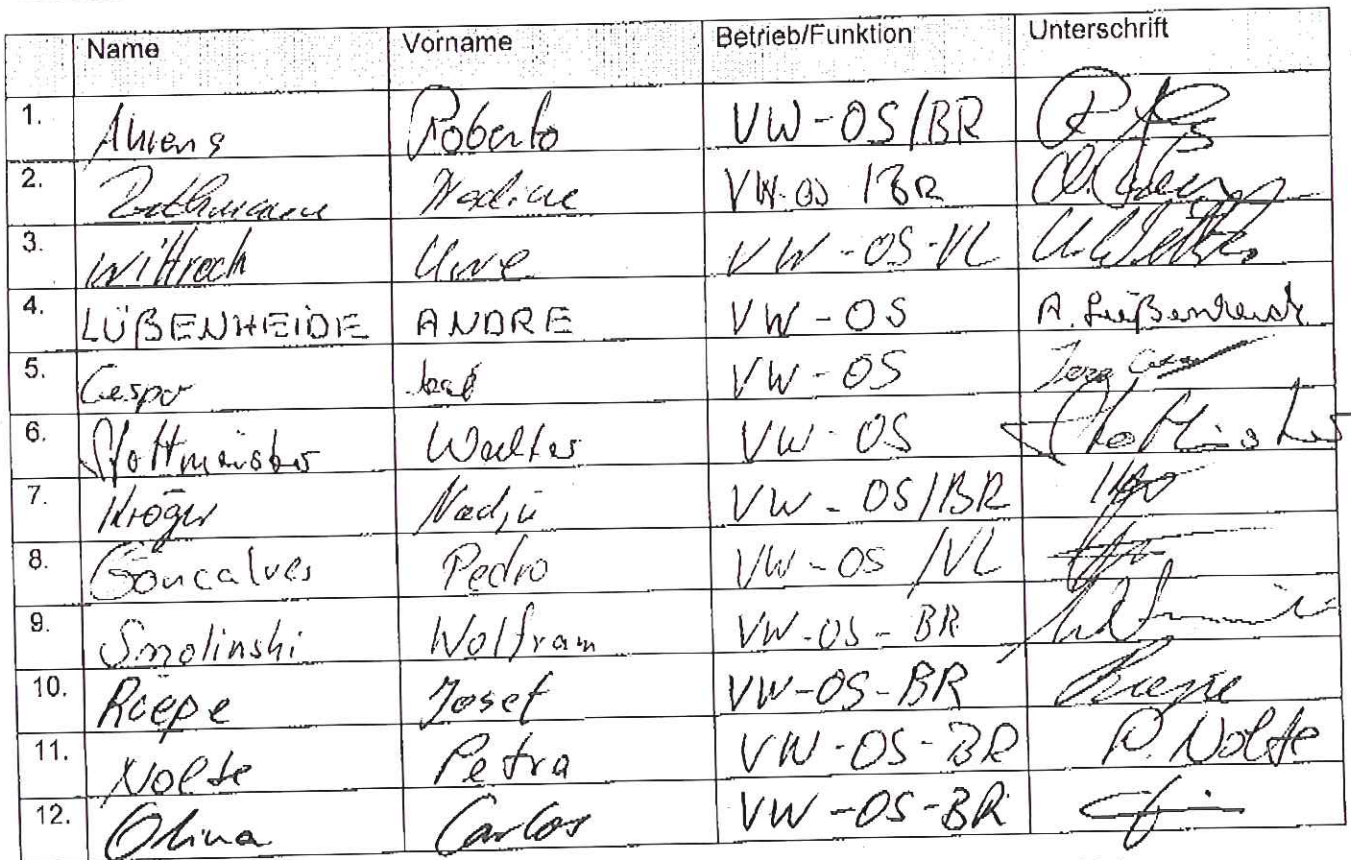 Name Vorname Betrieb/Funktion Unterschrift
1. Ahrens Roberto VW-OS/BR
2. Nadine VW-OS/BR
3. Wittroch Uwe VW-OS-VL
4. LÜßENHEIDE ANDRE VW-OS A. Lüßenheide
5. VW-OS
6. Stottmeister Walter VW-OS
7. Kröger Nadja VW-OS/BR
8. Goncalves Pedro VW-OS/VL
9. Smolinski Wolfram VW-OS-BR
10. Roepe Josef VW-OS-BR
11. Nolte Petra VW-OS-BR P. Nolte
12. Carlos VW-OS-BR